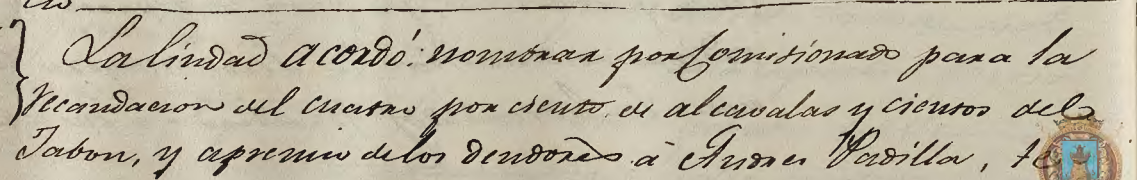 La Ciudad acordó: nombrar por Comisionado para la
recaudacion del cuatro por ciento de alcavalas y cientos del
Jabon, y apremio delos deudores à Andres Padilla,